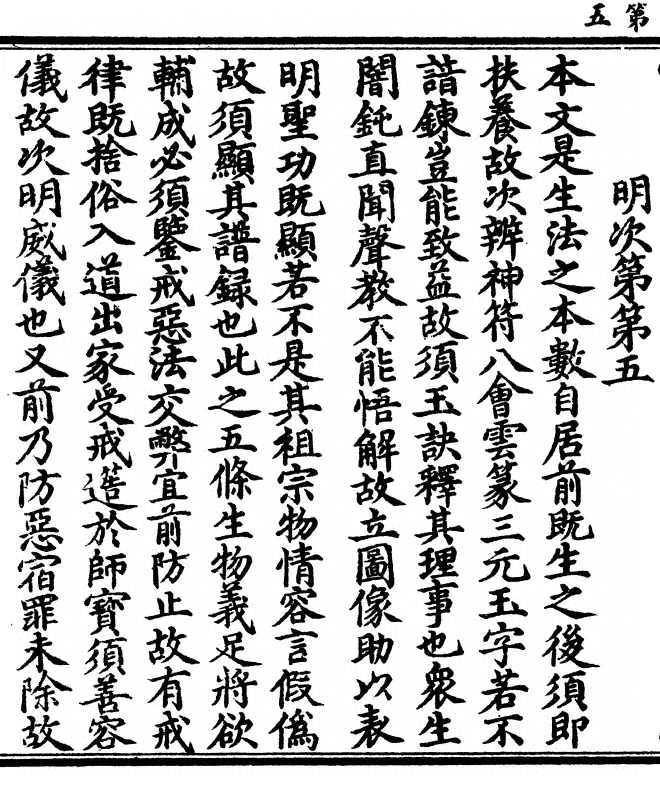 第五
明次第第五
本文是生法之本數自居前既生之後須即
扶養故次辨神符八會雲篆三元玉字若不
諳鍊豈能致益故須玉訣釋其理事也衆生
闇鈍直聞聲教不能悟解故立圖像助以表
明聖功既顯若不是其祖宗物情容言假僞
故須顯其譜録也此之五條生物義足將欲
輔成必須鑒戒惡法交弊宜前防止故有戒
律既捨俗入道出家受戒簉於師寶須善容
儀故次明威儀也又前乃防惡宿罪未除故